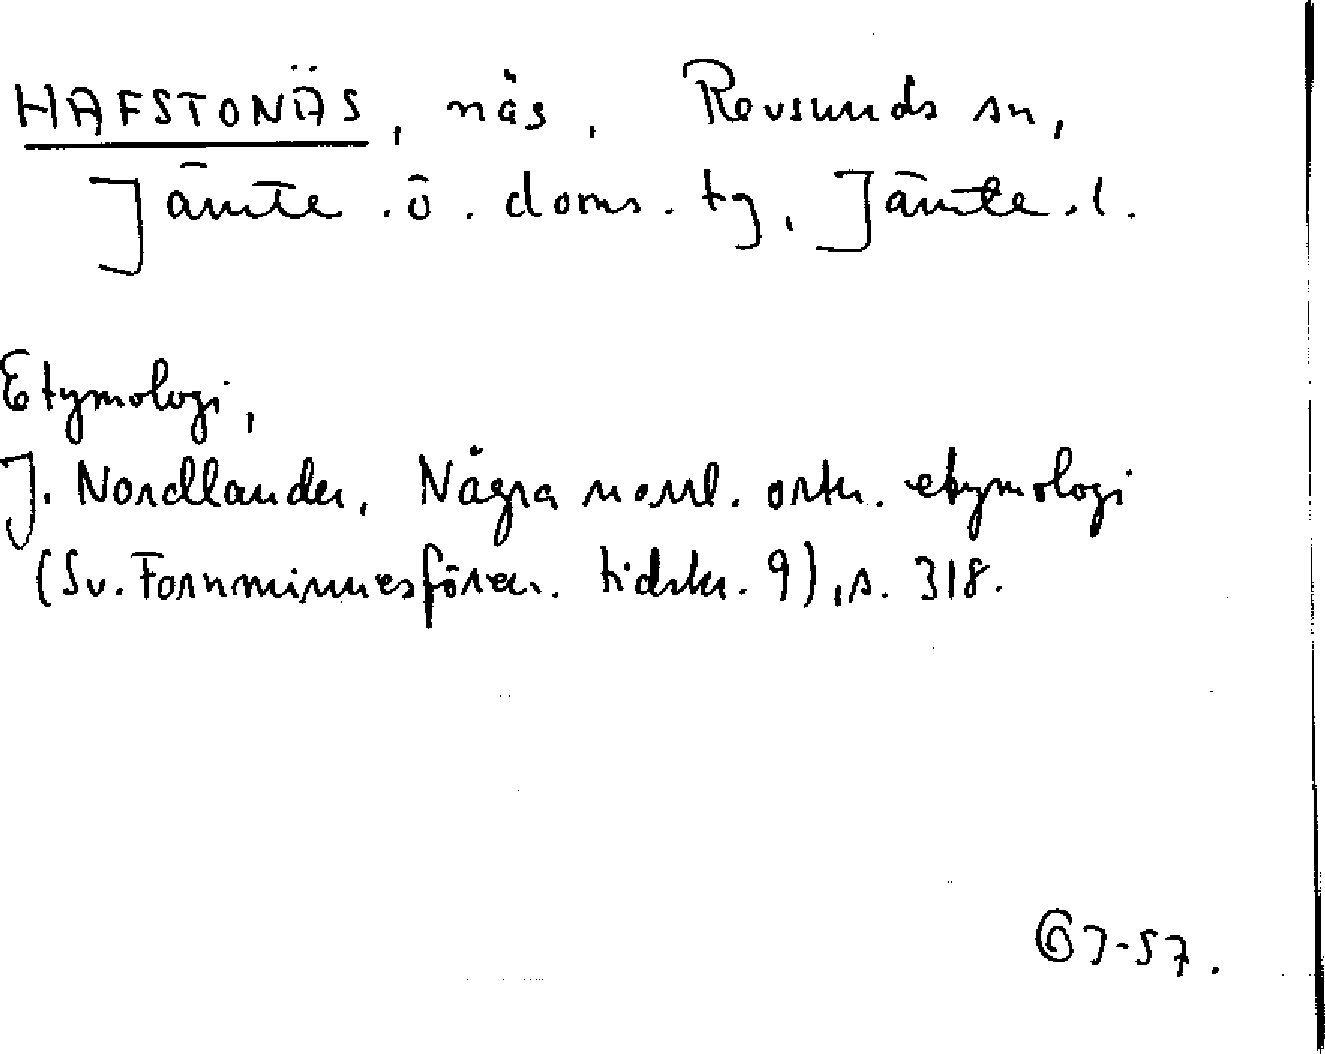 HAFSTONÄS, näs, Revsunds sn,
Jämte. ö. doms. tg, Jämte. l.
Etymologi,
J. Nordlander, Några norrl. ortn. etymologi
(Sv. Fornminnesfören. tidskr. 9), s. 318.
67-57.